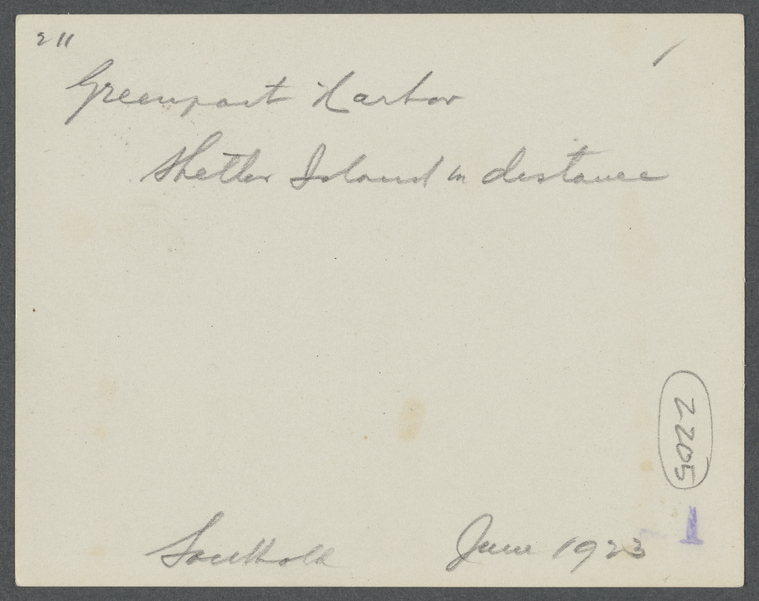 211
Greenport Harbor
Shelter Island in distance
2205
Southold June 1923